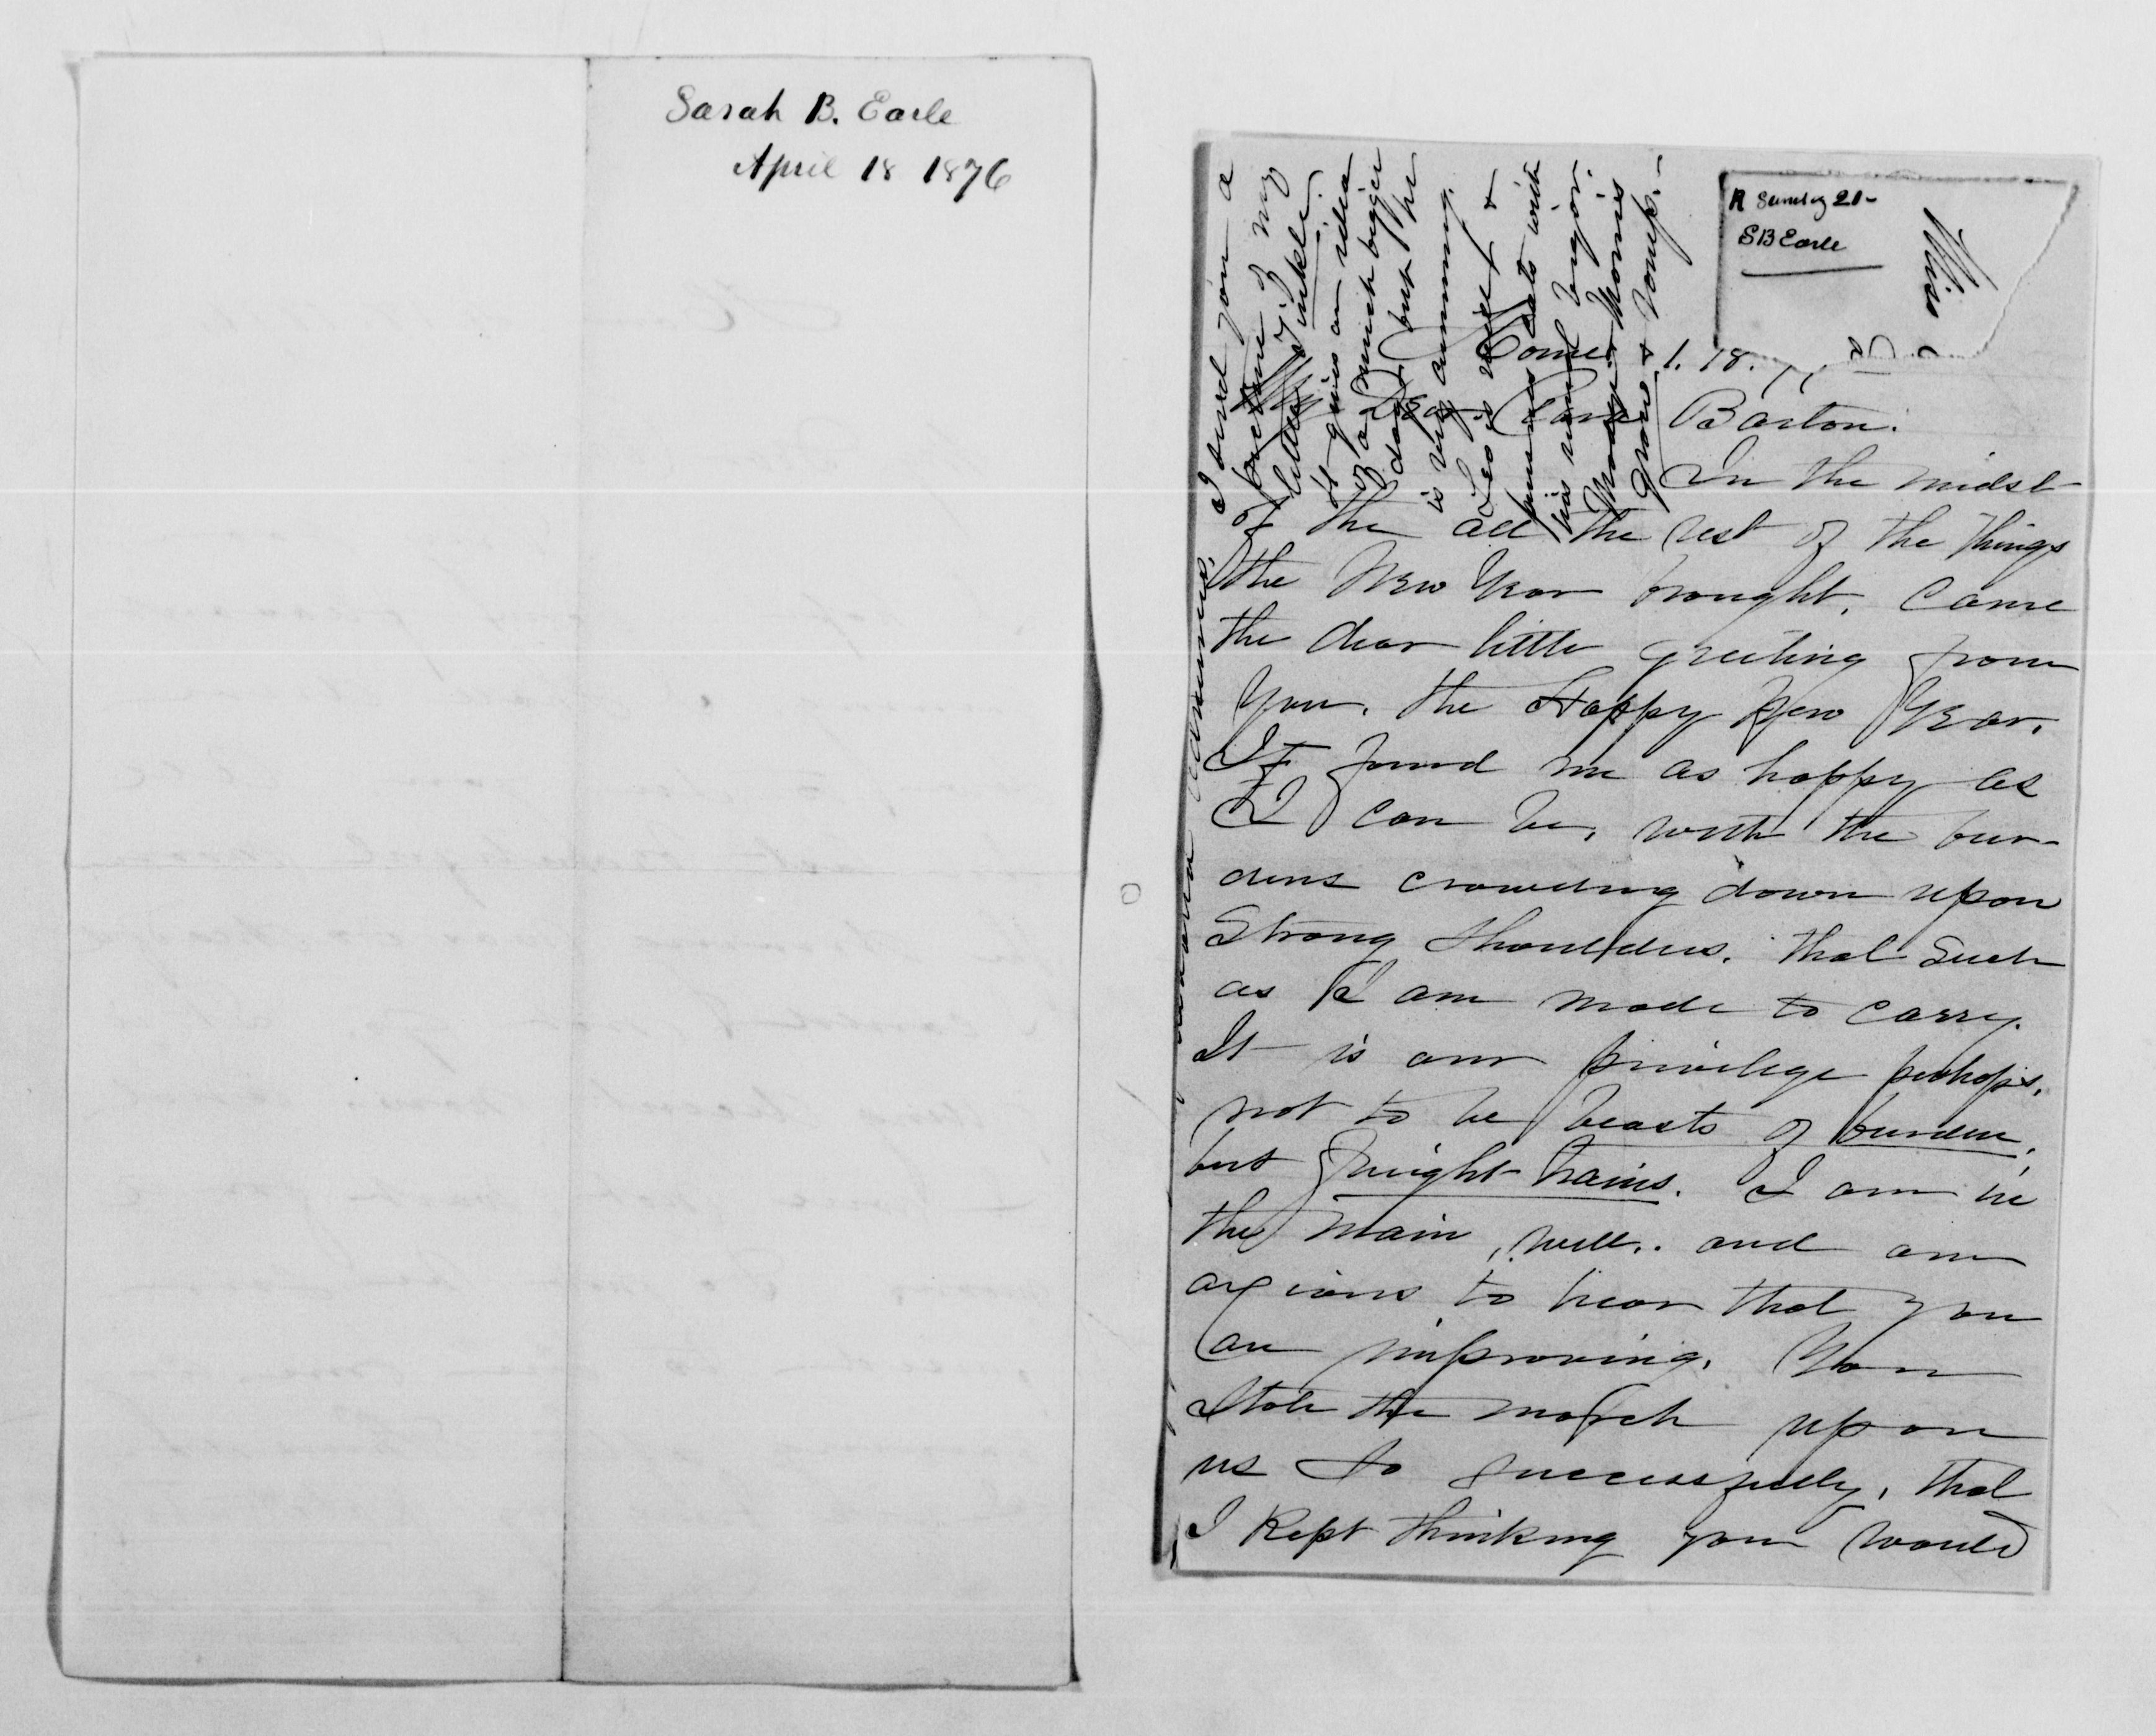 Sarah B. Earle
April 18 1876
R Sunday 21-
SB Earle
Home 1. 18.
My Dear Clara Barton.
In the midst
of the all the rest of the things
the New Year brought, came
the dear little greeting from
you. the Happy New Year.
It found me as happy as
I can be, with the bur-
dens crowding down upon
Strong shoulders. that such
as I am made to carry.
It is our privilege perhaps,
not to be beasts of burden,
but freight trains. I am in
the main, well. and am
axious to hear that you
are improving. You
Stole the march upon
us so successfully, that
I kept thinking you would
I send you a
picture of my
little Tinkle.
It gives an idea
of a much bigger
dog but he
is very cunning.
Leo is well &
pursues cats with
his usual vigor.
Mary & Morris
grow & romp.-